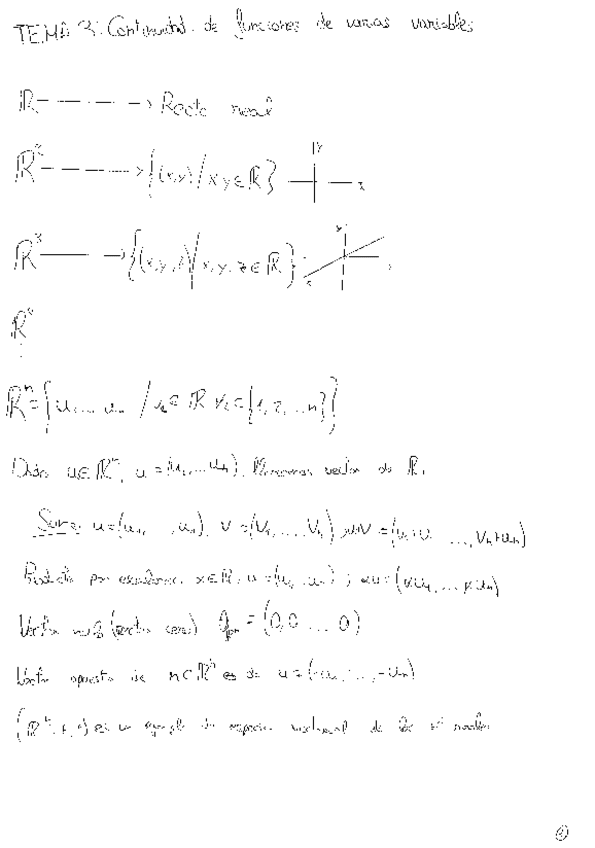 TEMA 3: Continuidad de funciones de varias variables
ℝ → Recta real
ℝ² → {(x,y) / x,y ∈ ℝ} y x
ℝ³ → {(x,y,z) / x,y,z ∈ ℝ}
ℝ⁴
⋮
ℝⁿ = {u₁,... uₙ / uᵢ ∈ ℝ ∀i = {1, 2, ...n}}
Dado u ∈ ℝⁿ, u = (u₁,...uₙ). vector de ℝ.
Suma: u = (u₁, ,uₙ), v = (v₁,...,vₙ) u+v = (u₁+v₁ ..., vₙ+uₙ)
Producto por escalares. α ∈ ℝ, u = (u₁, ,uₙ) ; αu = (αu₁,...αuₙ)
Vector nulo (vector cero) = (0,0 ... 0)
Vector opuesto de u ∈ ℝⁿ es de u = (-u₁,...,-uₙ)
(ℝⁿ,+,·) es un ejemplo de espacio vectorial de reales
①